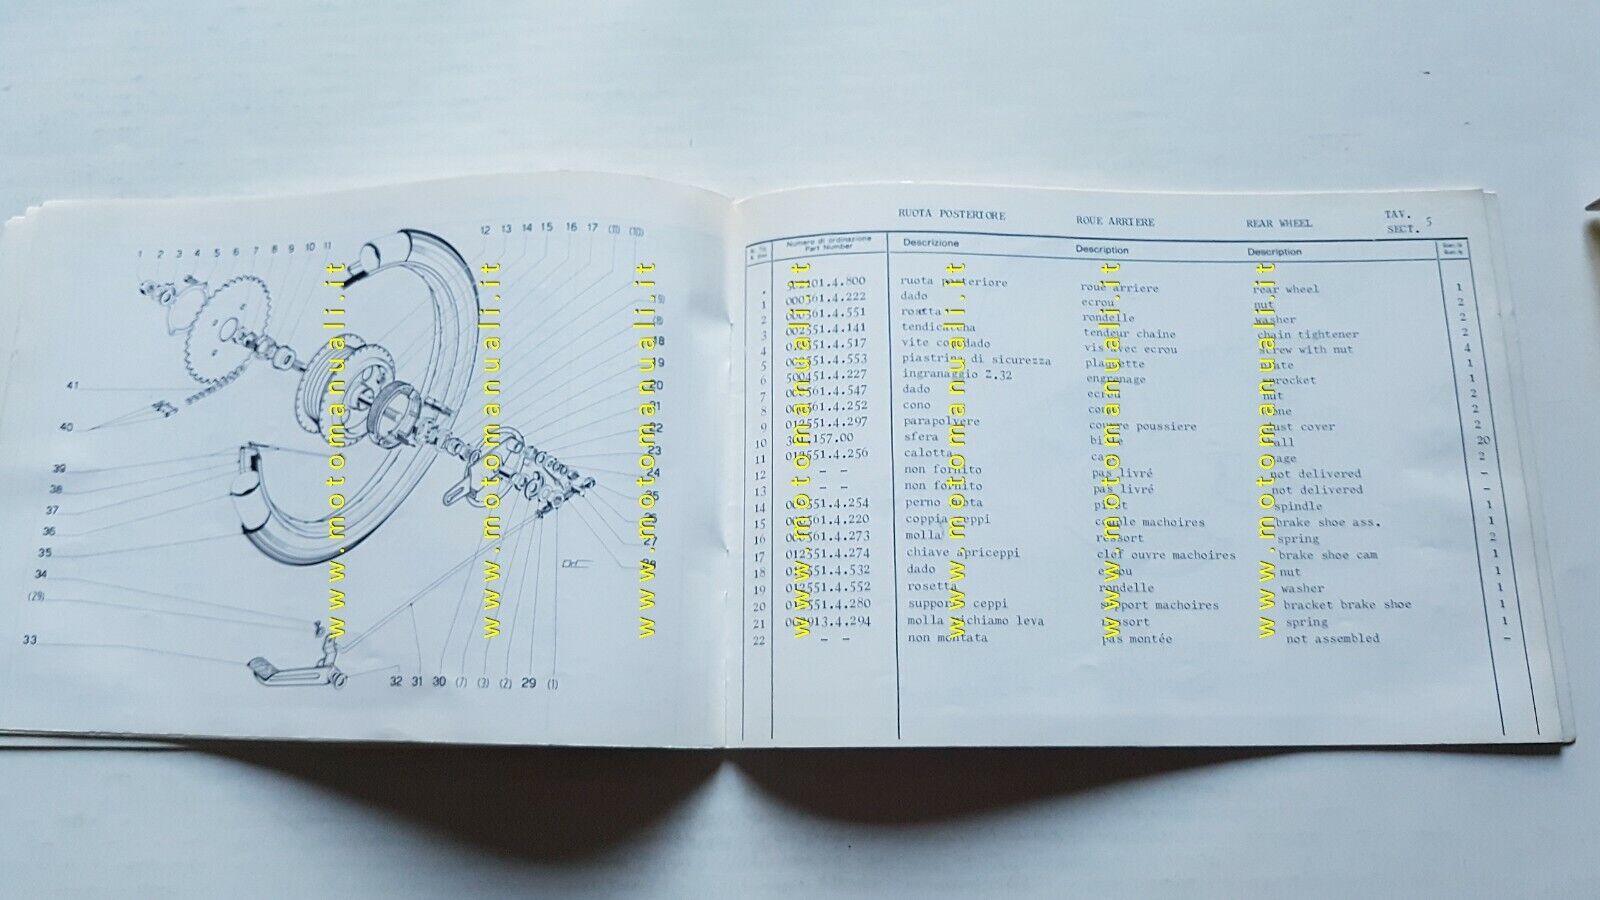 1 2 3 4 5 6 7 8 9 10 11
12 13 14 15 16 17 (11) (10)
(9)
(8)
18
19
20
21
22
23
24
25
26
27
28
41
40
39
38
37
36
35
34
(29)
33
32 31 30 (7) (3) (2) 29 (1)
www.motomanuali.it
www.motomanuali.it
www.motomanuali.it
RUOTA POSTERIORE ROUE ARRIERE REAR WHEEL TAV. SECT. 5
Numero di ordinazione Part Number Descrizione Description Description
. ruota posteriore roue arriere rear wheel 1
1 dado ecrou nut 2
2 rosetta rondelle washer 2
3 tendicatena tendeur chaine chain tightener 2
4 vite con dado vis avec ecrou screw with nut 4
5 piastrina di sicurezza plaquette plate 1
6 ingranaggio Z.32 engrenage sprocket 1
7 dado ecrou nut 2
8 cono cone cone 2
9 parapolvere couvre poussiere dust cover 2
10 sfera bille ball 20
11 calotta cage cage 2
12 - - non fornito pas livré not delivered -
13 - - non fornito pas livré not delivered -
14 perno ruota pivot spindle 1
15 coppia ceppi couple machoires brake shoe ass. 1
16 molla ressort spring 2
17 chiave apriceppi clef ouvre machoires brake shoe cam 1
18 dado ecrou nut 1
19 rosetta rondelle washer 1
20 supporto ceppi support machoires bracket brake shoe 1
21 molla richiamo leva ressort spring 1
22 - - non montata pas montée not assembled -
www.motomanuali.it
www.motomanuali.it
www.motomanuali.it
www.motomanuali.it